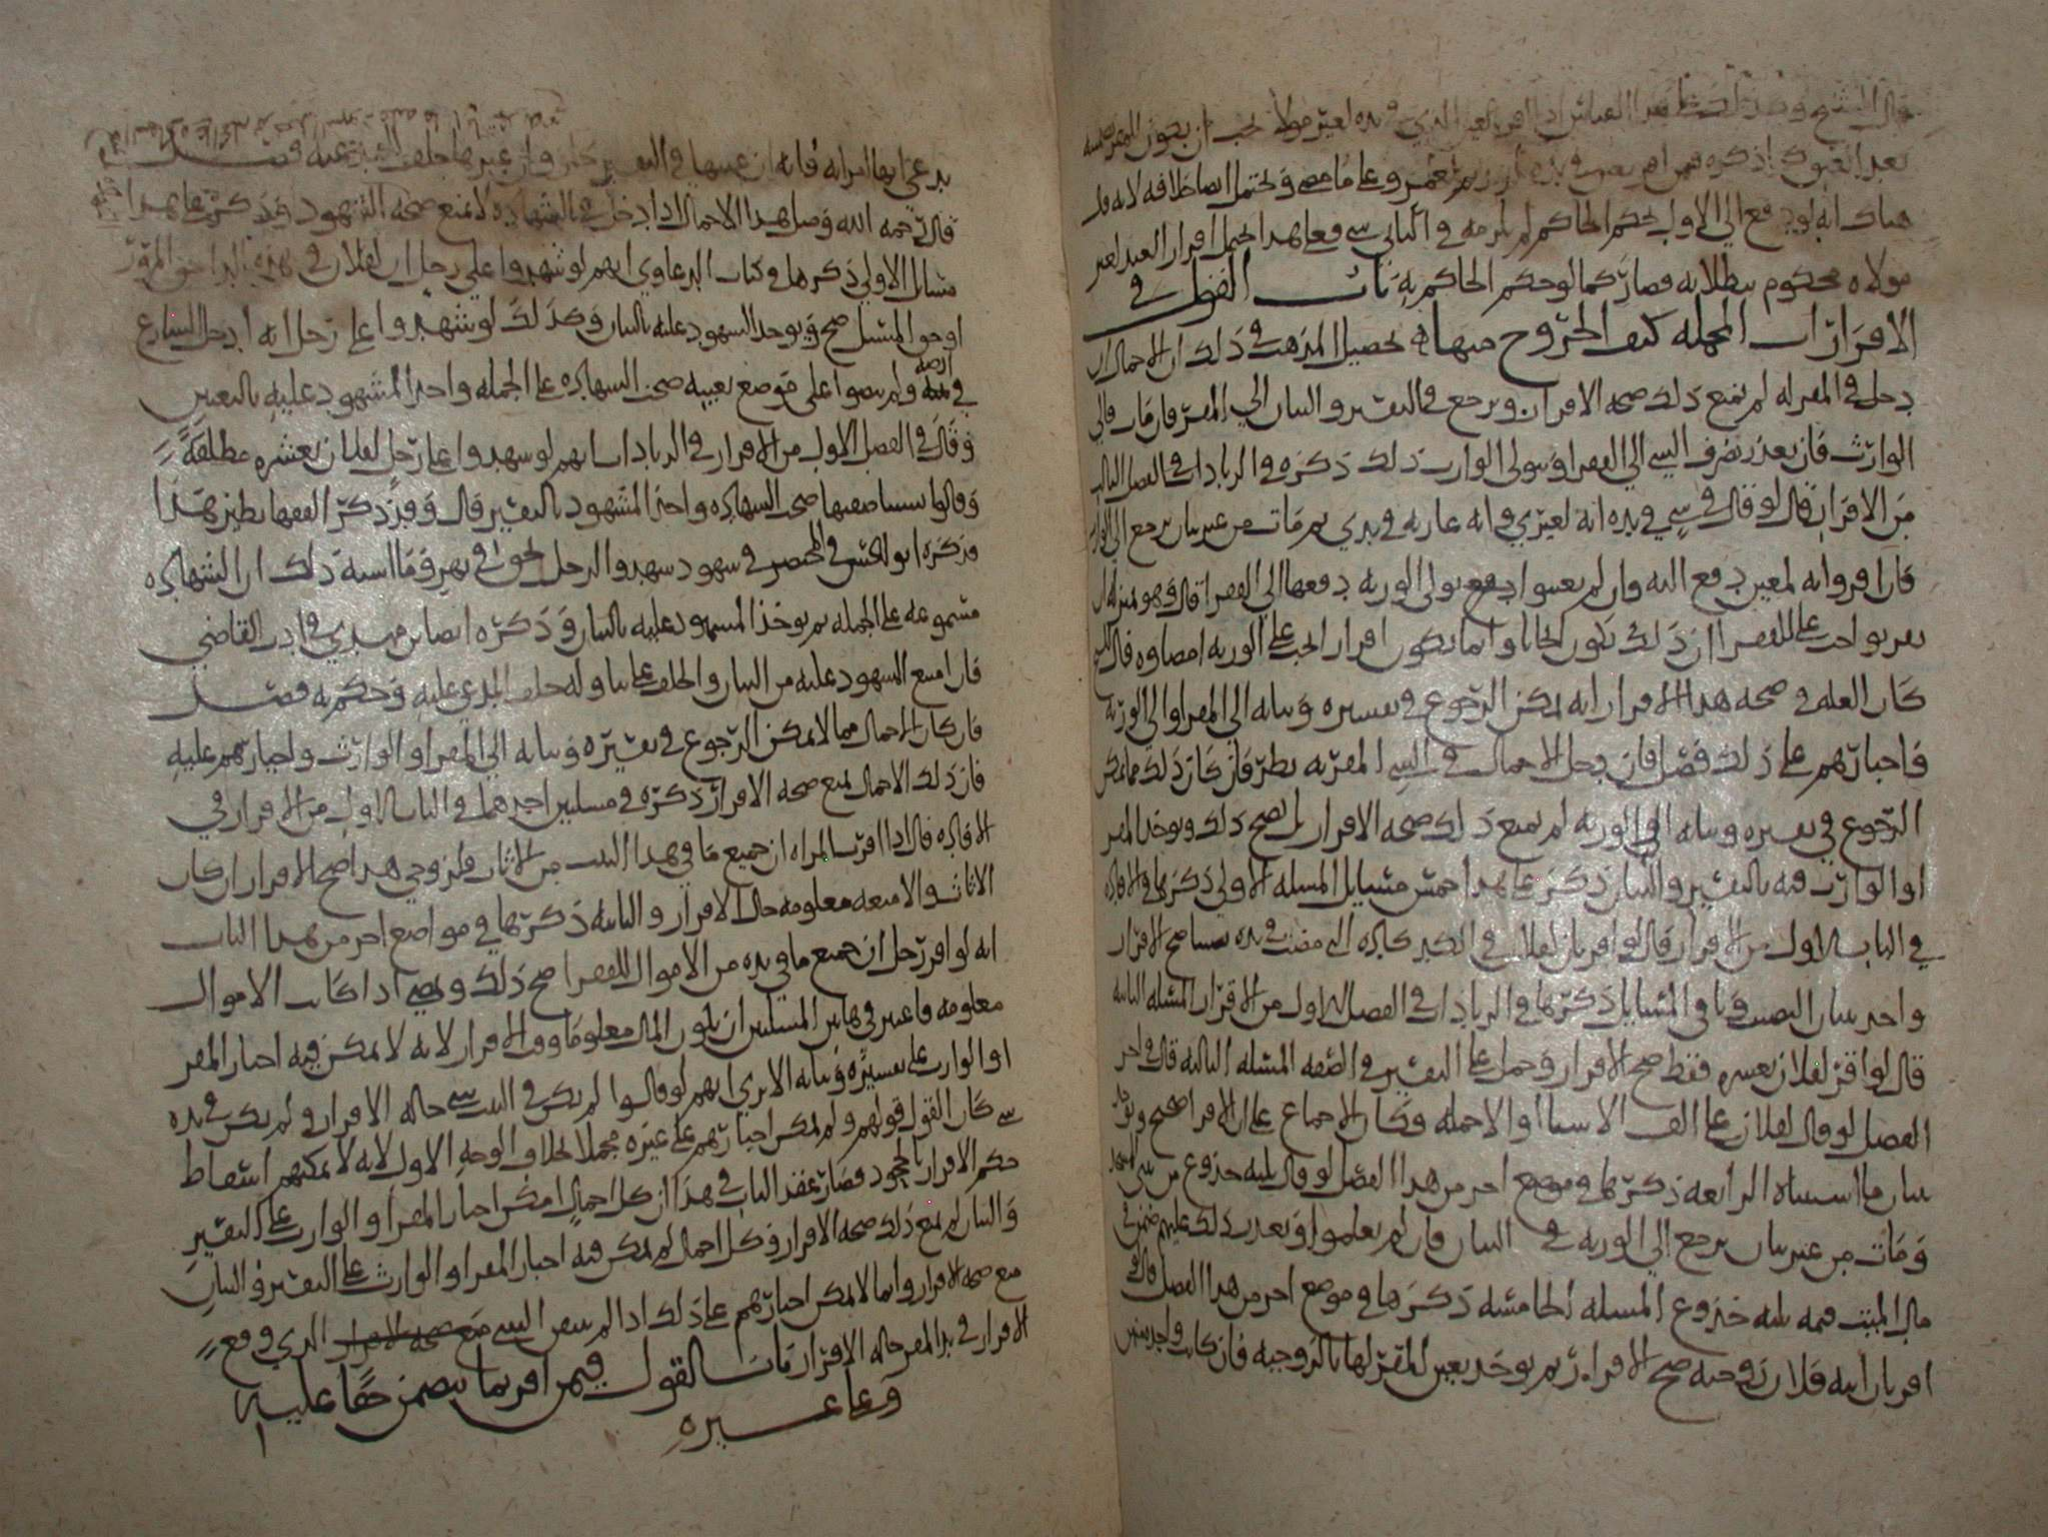 قال الشيخ وهذا
بعد العبوك إذ كره فيمن اقر بعبد في يده لزيد ثم لعمرو وعلى ما مضى ويحتمل ايضا خلافه لانه قد
هناك انه لو دفع الى الاول بحكم الحاكم لم يلزمه في الثاني شي فعلى هذا يحتمل اقرار العبد لغير
مولاه محكوم ببطلانه فصار كما لو حكم الحاكم به باب القول في
الاقرارات المجمله كيف الخروج منها تحصيل المذهب في ذلك ان الاجمال ان
دخل في المقر له لم يمنع ذلك صحه الاقرار ويرجع في التفسير والبيان الى المقر فان مات فالى
الوارث فان تعذر صرف الشي الى الفقرا ويتولى الوارث ذلك ذكره في الزيادات في الفصل الثالث
من الاقرار قال لو قال في شي في يده انه لغيري وانه عاريه في يدي ثم مات من غير بيان يرجع الى الوارث
فان اقروا به لمعين دفع اليه وان لم يعينوا تولى الورثه دفعها الى الفقرا قال وهو بمنزله ان
يقر بواجب على للفقرا ان ذلك يكون ايجابا وانما يكون اقرار الجب على الورثه امضاوه قال
كان العله في صحه هذا الاقرار انه يمكن الرجوع في تفسيره وبيانه الى المقر او الى الورثه
واجبارهم على ذلك فصل فان دخل الاجمال في الشي المقر به نظر فان كان ذلك مما يمكن
الرجوع في تفسيره وبيانه الى الورثه لم يمنع ذلك صحه الاقرار بل يصح ذلك ويوخذ المقر
او الوارث فيه بالتفسير والبيان ذكر على هذا خمس مسايل المسله الاولى ذكرها في الافاده
في الباب الاول من الاقرار قال لو اقر بان لفلان في الكبر كاده التي مضت في يده نصيبا صح الاقرار
واخذ ببيان النصيب وباقي المسايل ذكرها في الزيادات في الفصل الاول من الاقرار المسله الثانيه
قال لو اقر لفلان بعشره فقط صح الاقرار وحمل على التفسير في الصفه المسله الثالثه قال في اخر
الفصل لو قال لفلان على الف الا شيا او الا جمله وكان الاجماع على ان الاقرار صحيح ويوخذ
ببيان ما استثناه الرابعه ذكرها في موضع اخر من هذا الفصل لو قال ثلثه جذوع من
ومات من غير بيان يرجع الى الورثه في البيان فان لم يعلموا وتعذر ذلك عليهم ضمن في
مال الميت قيمه ثلثه جذوع المسله الخامسه ذكرها في موضع اخر من هذا الفصل قال
اقر بان ابنه فلان زوجته صح الاقرار ثم يوخذ بتعيين المقر لها بالزوجيه فان كانت واحده منهن
يدعى انها امراته فانه ان عينها في التفسير وان عين غيرها حلف فصل
قال رحمه الله وحصل هذا الاجمال اذا دخل في الشهاده لا يمنع صحه الشهود وقد ذكر على هذا
مسايل الاولى ذكرها في كتاب الدعاوي انهم لو شهدوا على رجل ان لفلان في هذه الدار حق المرور
او حق المسيل صح ويوخذ المشهود عليه بالبيان وكذلك لو شهدوا على رجل انه ادخل الشارع
في ارضه ولم ينصوا على موضع بعينه صحت الشهاده على الجمله واخذ المشهود عليه بالتعيين
وقال في الفصل الاول من الاقرار في الزيادات انهم لو شهدوا على رجل لفلان بعشره مطلقه
وقالوا نسينا صفتها صحت الشهاده واخذ المشهود بالتفسير قال وقد ذكر الفقها نظير هذا
فذكره ابو الحسن في المختصر في شهود شهدوا لرجل بحق في نهر وما اشبه ذلك ان الشهاده
مسموعه على الجمله ثم يوخذ المشهود عليه بالبيان وذكره ايضا بن مهدي في ادب القاضي
فان امتنع المشهود عليه من البيان والحلف على ما وله حلف المدعي عليه وحكم به فصل
فان كان الاجمال مما لا يمكن الرجوع في تفسيره وبيانه الى المقر او الوارث واجبارهم عليه
فان ذلك الاجمال يمنع صحه الاقرار ذكره في مسلتين احدهما في الباب الاول من الاقرار في
الافاده قال اذا اقرت المراه ان جميع ما في هذا البيت من الاثاث فلزوجي هذا صح الاقرار ان كان
الاثاث والامتعه معلومه حال الاقرار والثانيه ذكرها في مواضع اخر من هذا الباب
انه لو اقر رجل ان جميع ما في يده من الاموال للفقرا صح ذلك ويصح اذا كانت الاموال
معلومه فاعتبر في هاتين المسلتين ان يكون المال معلوما وقت الاقرار لانه لا يمكن فيه اجبار المقر
او الوارث على تفسيره وبيانه الا ترى انهم لو قالوا لم يكن في البيت شي حاله الاقرار ولم يكن في يده
شي كان القول قولهم ولم يمكن اجبارهم على غيره مجملا بخلاف الوجه الاول لانه لا يمكنهم اسقاط
حكم الاقرار بالجحود فصار عقد الباب في هذا ان كل اجمال امكن اجبار المقر او الوارث على التفسير
والبيان لم يمنع ذلك صحه الاقرار وكل اجمال لم يمكن فيه اجبار المقر او الوارث على التفسير والبيان
منع صحه الاقرار وانما لا يمكن اجبارهم على ذلك اذا لم يتعين الشي الذي وقع
الاقرار في يد المقر حاله الاقرار باب القول فيمن اقر بما يتضمن حقا عليه
وعلى غيره